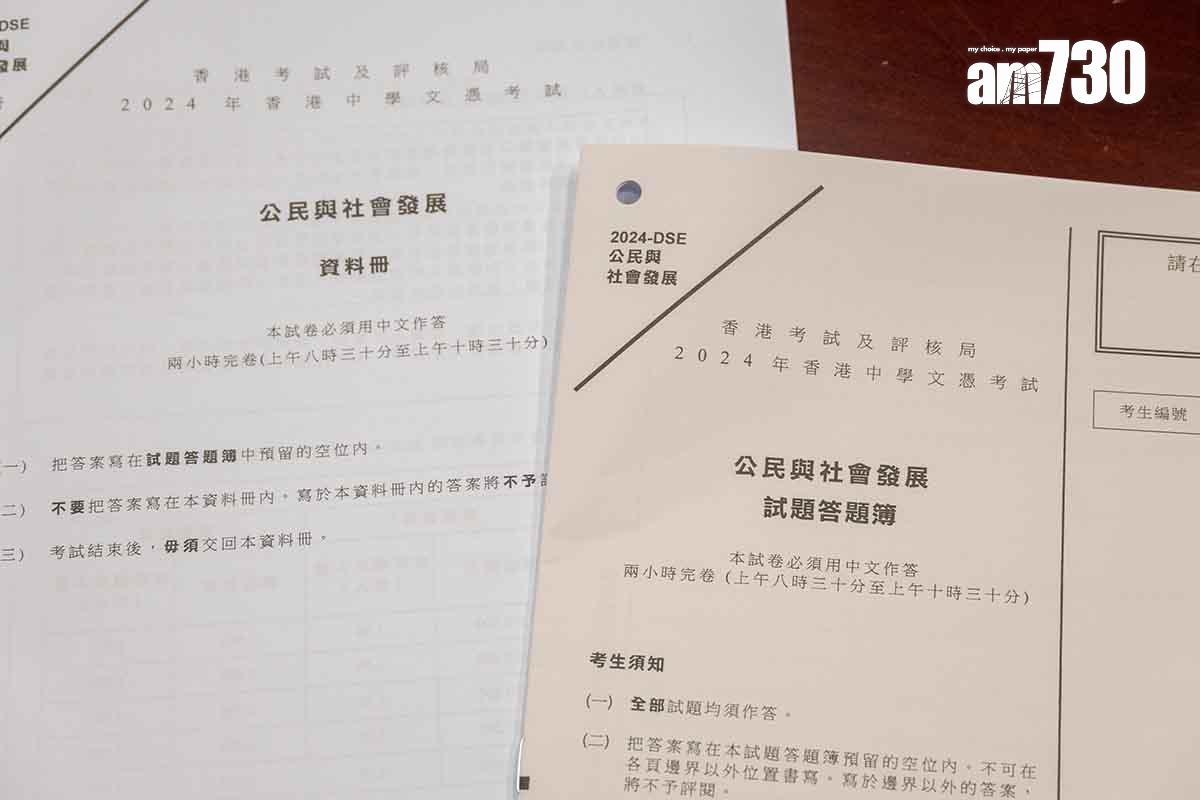 my choice . my paper
am730
-DSE
與
發展
香港考試及評核局
2024年香港中學文憑考試
公民與社會發展
資料冊
本試卷必須用中文作答
兩小時完卷(上午八時三十分至上午十時三十分)
(一) 把答案寫在試題答題簿中預留的空位內。
(二) 不要把答案寫在本資料冊內。寫於本資料冊內的答案將不予
(三) 考試結束後，毋須交回本資料冊。
2024-DSE
公民與
社會發展
香港考試及評核局
2024年香港中學文憑考試
公民與社會發展
試題答題簿
本試卷必須用中文作答
兩小時完卷 (上午八時三十分至上午十時三十分)
考生須知
(一) 全部試題均須作答。
(二) 把答案寫在本試題答題簿預留的空位內。不可在
各頁邊界以外位置書寫。寫於邊界以外的答案，
將不予評閱。
請在
考生編號